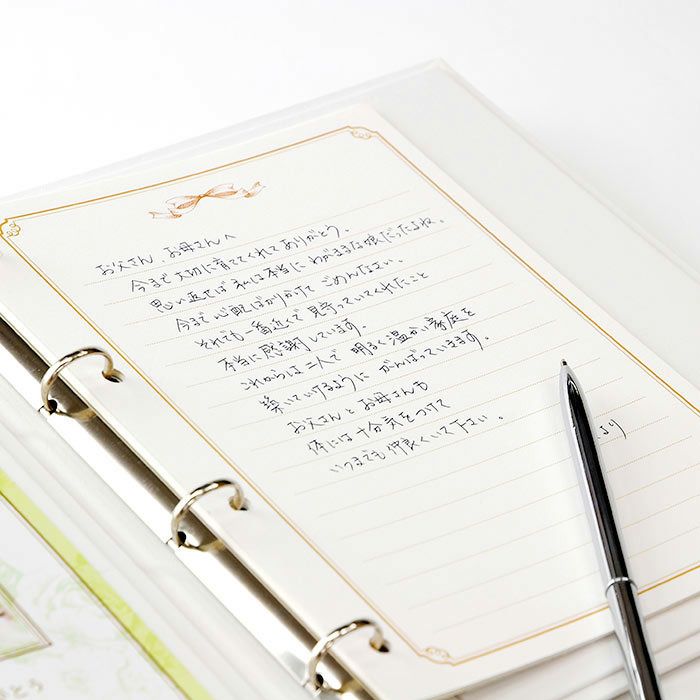 お父さん、お母さんへ
今まで大切に育ててくれてありがとう。
思い返せば私は本当にわがままな娘だったよね。
今まで心配ばかりかけてごめんなさい。
それでも一番近くで見守っていてくれたこと
本当に感謝しています。
これからは二人で明るく温かい家庭を
築いていけるようにがんばっていきます。
お父さんとお母さんも
体には十分気をつけて
いつまでも仲良くいて下さい。
より
とう